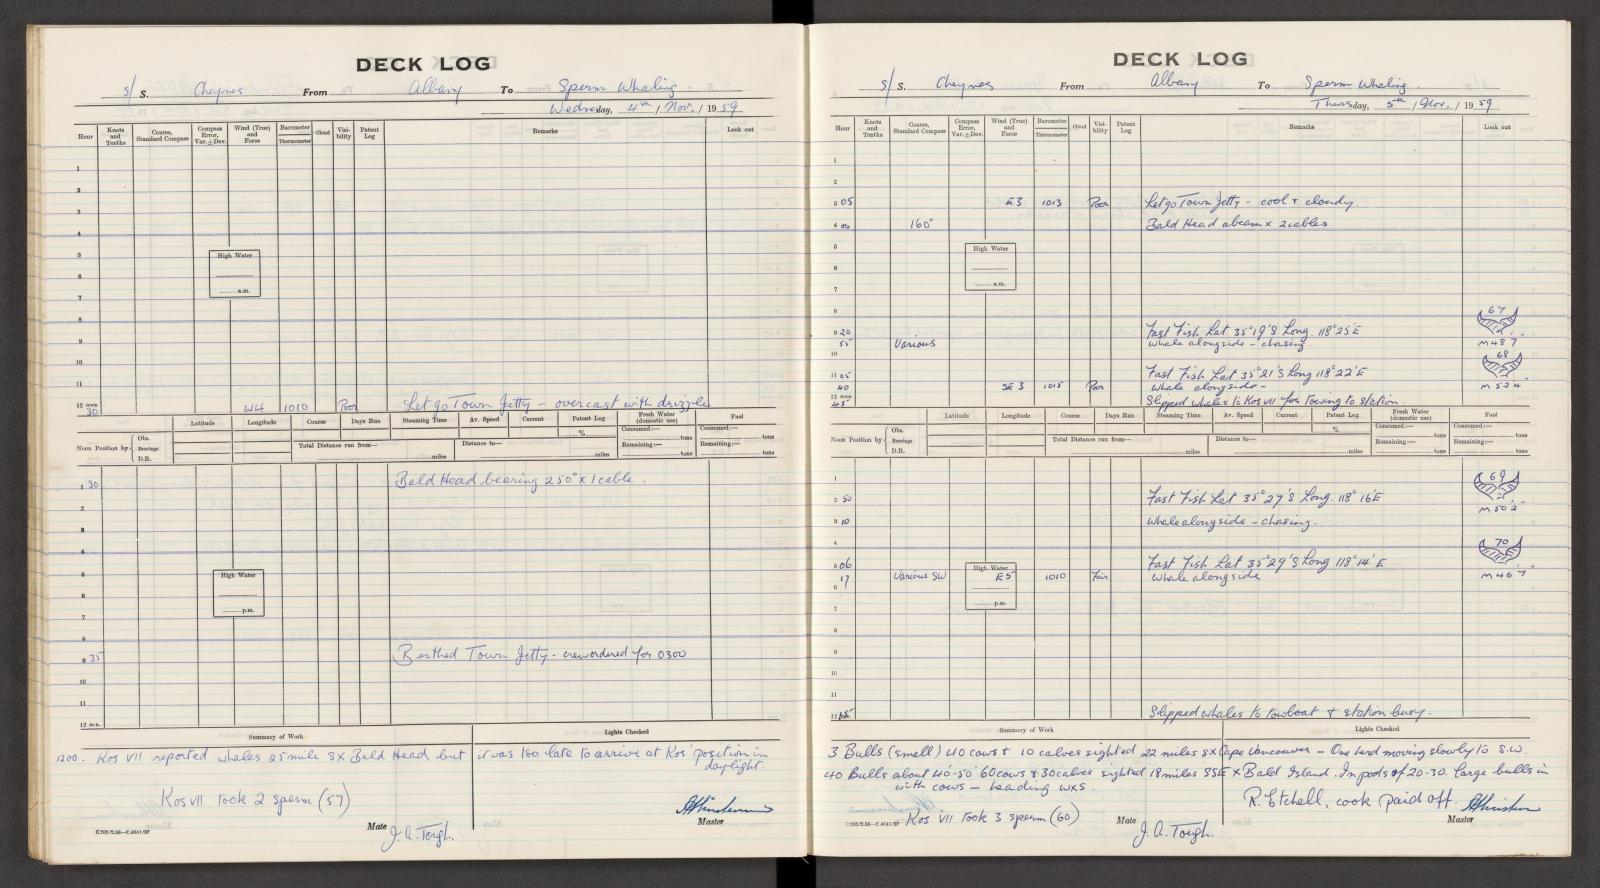 DECK LOG
S/ S. Cheynes From Albany To Sperm Whaling.
Wednesday, 4th / Nov. / 1959
Hour Knots and Tenths Course, Standard Compass Compass Error, Var. ± Dev. Wind (True) and Force Barometer Thermometer Cloud Visibility Patent Log Remarks Look out
1
2
3
4
5
High Water
6
a.m.
7
8
9
10
11
12 noon
30 W4 1010 Poor Let go Town Jetty - overcast with drizzle
Latitude Longitude Course Days Run Steaming Time Av. Speed Current Patent Log Fresh Water (domestic use) Fuel
% Consumed:— tons Consumed:— tons
Noon Position by { Obs. Bearings D.R. Total Distance run from— miles Distance to— miles Remaining:— tons Remaining:— tons
1 30 Bald Head bearing 250° x 1 cable.
2
3
4
5
High Water
6
p.m.
7
8
9 35 Berthed Town Jetty - crew ordered for 0300
10
11
12 m.n.
Summary of Work Lights Checked
1200. Kos VII reported whales 25 mile SX Bald Head but it was too late to arrive at Kos' position in
daylight.
Kos VII took 2 sperm (57)
Mate J. A. Tough. Master
C.703/2.58—C.4641/57
DECK LOG
S/ S. Cheynes From Albany To Sperm Whaling.
Thursday, 5th / Nov. / 1959
Hour Knots and Tenths Course, Standard Compass Compass Error, Var. ± Dev. Wind (True) and Force Barometer Thermometer Cloud Visibility Patent Log Remarks Look out
1
2
3 05 E3 1013 Poor Let go Town Jetty - cool + cloudy.
4 00 160° Bald Head abeam x 2 cables.
5
High Water
6
a.m.
7
8
67
9 20 Fast Fish Lat 35°19'S Long. 118°25'E
55 Various whale alongside - chasing. M 48'7"
10
68
11 05 Fast Fish Lat 35°21'S Long 118°22'E
40 SE 3 1015 Poor whale alongside - M 52'4"
12 noon
45 Slipped whales to Kos VII for Towing to station.
Latitude Longitude Course Days Run Steaming Time Av. Speed Current Patent Log Fresh Water (domestic use) Fuel
% Consumed:— tons Consumed:— tons
Noon Position by { Obs. Bearings D.R. Total Distance run from— miles Distance to— miles Remaining:— tons Remaining:— tons
1
69
2 50 Fast Fish Lat 35°27'S Long. 118°16'E
M 50'2"
3 10 whale alongside - chasing.
4
70
5 06 Fast Fish Lat 35°29'S Long 118°14'E
17 Various SW High Water E5 1010 Fair whale alongside M 46'7"
6
p.m.
7
8
9
10
11
12 Slipped whales to towboat + station buoy.
Summary of Work Lights Checked
3 Bulls (small) 40 cows + 10 calves sighted 22 miles SX Cape Vancouver - One herd moving slowly to S.W.
40 Bulls about 40'-50' 60 cows + 30 calves sighted 18 miles SSE x Bald Island. In pods of 20-30. Large bulls in
with cows - heading WXS.
R. Etchell, cook paid off.
C.703/2.58—C.4641/57 Kos VII took 3 sperm (60) Mate J. A. Tough. Master